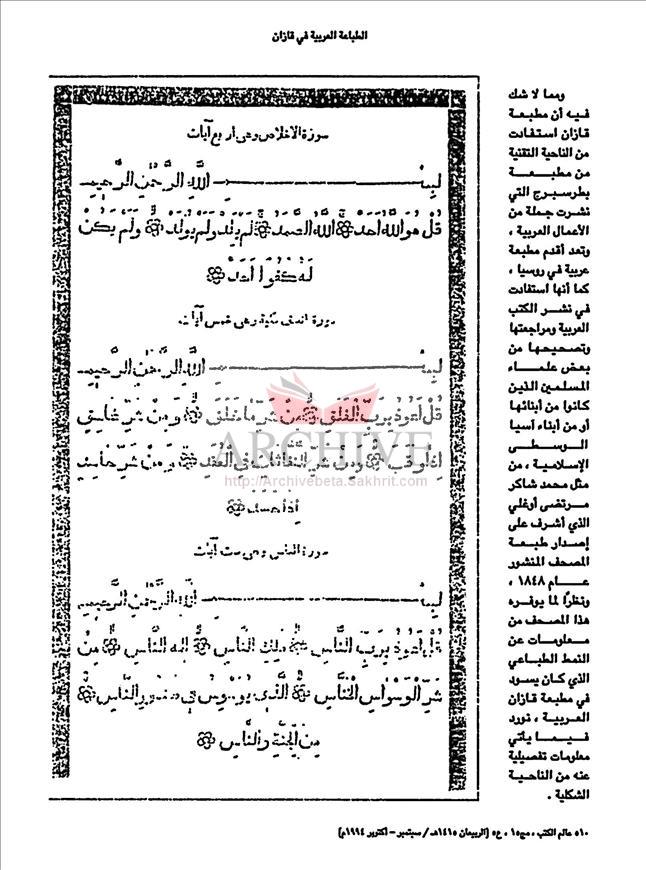 الطباعة العربية في قازان
ومما لا شك
فيه أن مطبعة
قازان استفادت
من الناحية التقنية
من مطبعة
بطرسبرج التي
نشرت جملة من
الأعمال العربية ،
وتعد أقدم مطبعة
عربية في روسيا ،
كما أنها استفادت
في نشر الكتب
العربية ومراجعتها
وتصحيحها من
بعض علماء
المسلمين الذين
كانوا من أبنائها
أو من أبناء آسيا
الوسطى
الإسلامية ، من
مثل محمد شاكر
مرتضى أوغلي
الذي أشرف على
إصدار طبعة
المصحف المنشور
عام ١٨٤٨ ،
ونظرًا لما يوفره
هذا المصحف من
معلومات عن
النمط الطباعي
الذي كان يسود
في مطبعة قازان
العربية ، نورد
فيما يأتي
معلومات تفصيلية
عنه من الناحية
الشكلية .
سورة الاخلاص وهى اربع آيات
بِسْمِ اللَّهِ الرَّحْمٰنِ الرَّحِيمِ
قُلْ هُوَ اللَّهُ اَحَدٌ اَللَّهُ الصَّمَدُ لَمْ يَلِدْ وَلَمْ يُولَدْ وَلَمْ يَكُنْ
لَهُ كُفُوًا اَحَدٌ
سورة الفلق مكية وهى خمس آيات
بِسْمِ اللَّهِ الرَّحْمٰنِ الرَّحِيمِ
قُلْ اَعُوذُ بِرَبِّ الْفَلَقِ مِنْ شَرِّ مَا خَلَقَ وَمِنْ شَرِّ غَاسِقٍ
اِذَا وَقَبَ وَمِنْ شَرِّ النَّفَّاثَاتِ فِى الْعُقَدِ وَمِنْ شَرِّ حَاسِدٍ
اِذَا حَسَدَ
سورة الناس وهى ست آيات
بِسْمِ اللَّهِ الرَّحْمٰنِ الرَّحِيمِ
قُلْ اَعُوذُ بِرَبِّ النَّاسِ مَلِكِ النَّاسِ اِلٰهِ النَّاسِ مِنْ
شَرِّ الْوَسْوَاسِ الْخَنَّاسِ الَّذِى يُوَسْوِسُ فِى صُدُورِ النَّاسِ
مِنَ الْجِنَّةِ وَالنَّاسِ
ARCHIVE
http://Archivebeta.Sakhrit.com
٥١٠ عالم الكتب ، مج١٥ ، ع٥ (الربيعان ١٤١٥هـ / سبتمبر – أكتوبر ١٩٩٤م)